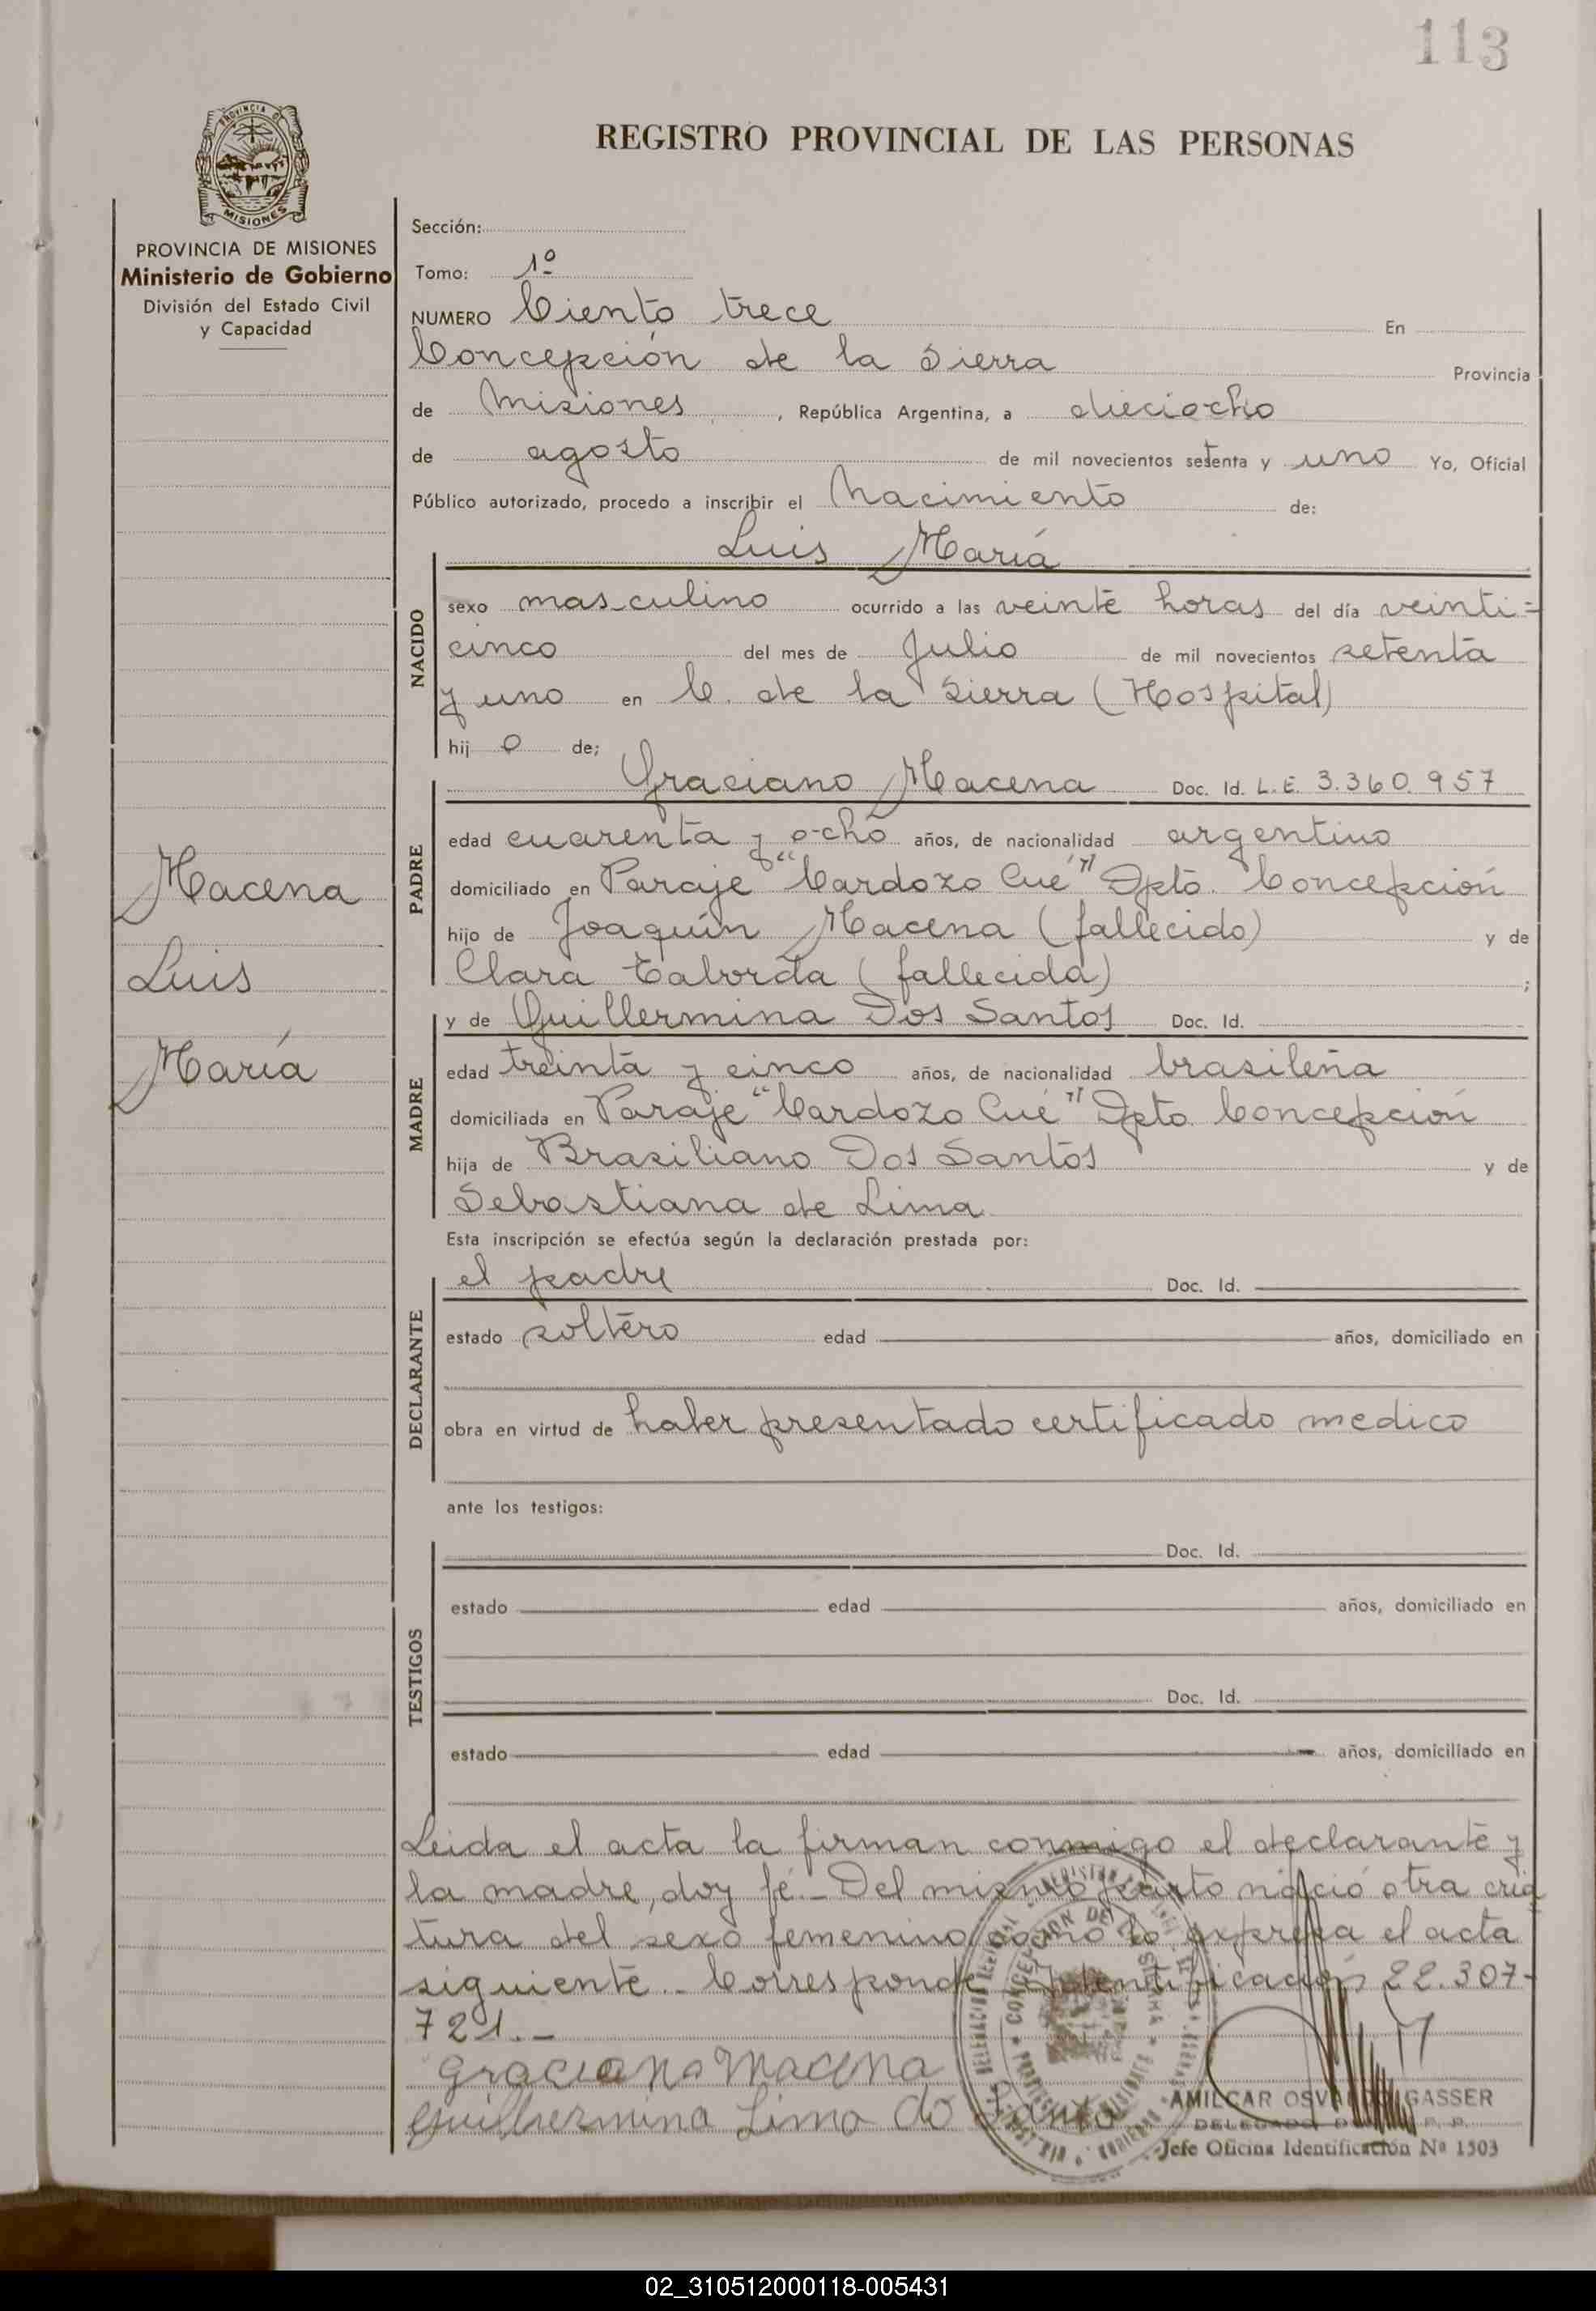 113
REGISTRO PROVINCIAL DE LAS PERSONAS
PROVINCIA DE
MISIONES
PROVINCIA DE MISIONES
Ministerio de Gobierno
División del Estado Civil
y Capacidad
Macena
Luis
María
Sección:
Tomo: 1º
NUMERO Ciento trece En
Concepción de la Sierra Provincia
de Misiones, República Argentina, a dieciocho
de agosto de mil novecientos setenta y uno Yo, Oficial
Público autorizado, procedo a inscribir el Nacimiento de:
Luis María
NACIDO
sexo masculino ocurrido a las veinte horas del día veinti=
cinco del mes de Julio de mil novecientos setenta
y uno en C. de la Sierra (Hospital)
hij o de;
Graciano Macena Doc. Id. L.E. 3.360.957
PADRE
edad cuarenta y ocho años, de nacionalidad argentino
domiciliado en Paraje "Cardozo Cué" Dpto. Concepción
hijo de Joaquín Macena (fallecido) y de
Clara Taborda (fallecida) ;
y de Guillermina Dos Santos Doc. Id.
MADRE
edad treinta y cinco años, de nacionalidad brasileña
domiciliada en Paraje "Cardozo Cué" Dpto. Concepción
hija de Brasiliano Dos Santos y de
Sebastiana de Lima
Esta inscripción se efectúa según la declaración prestada por:
el padre Doc. Id.
DECLARANTE
estado soltero edad años, domiciliado en
obra en virtud de haber presentado certificado medico
ante los testigos:
Doc. Id.
TESTIGOS
estado edad años, domiciliado en
Doc. Id.
estado edad años, domiciliado en
Leida el acta la firman conmigo el declarante y
la madre, doy fé.- Del mismo parto nació otra cria
tura del sexo femenino como lo expresa el acta
siguiente.- Corresponde Identificación 22.307-
721.-
Graciano Macena
Guillermina Lima do Santo
AMILCAR OSVALDO GASSER
DELEGADO
Jefe Oficina Identificación Nº 1503
02_310512000118-005431